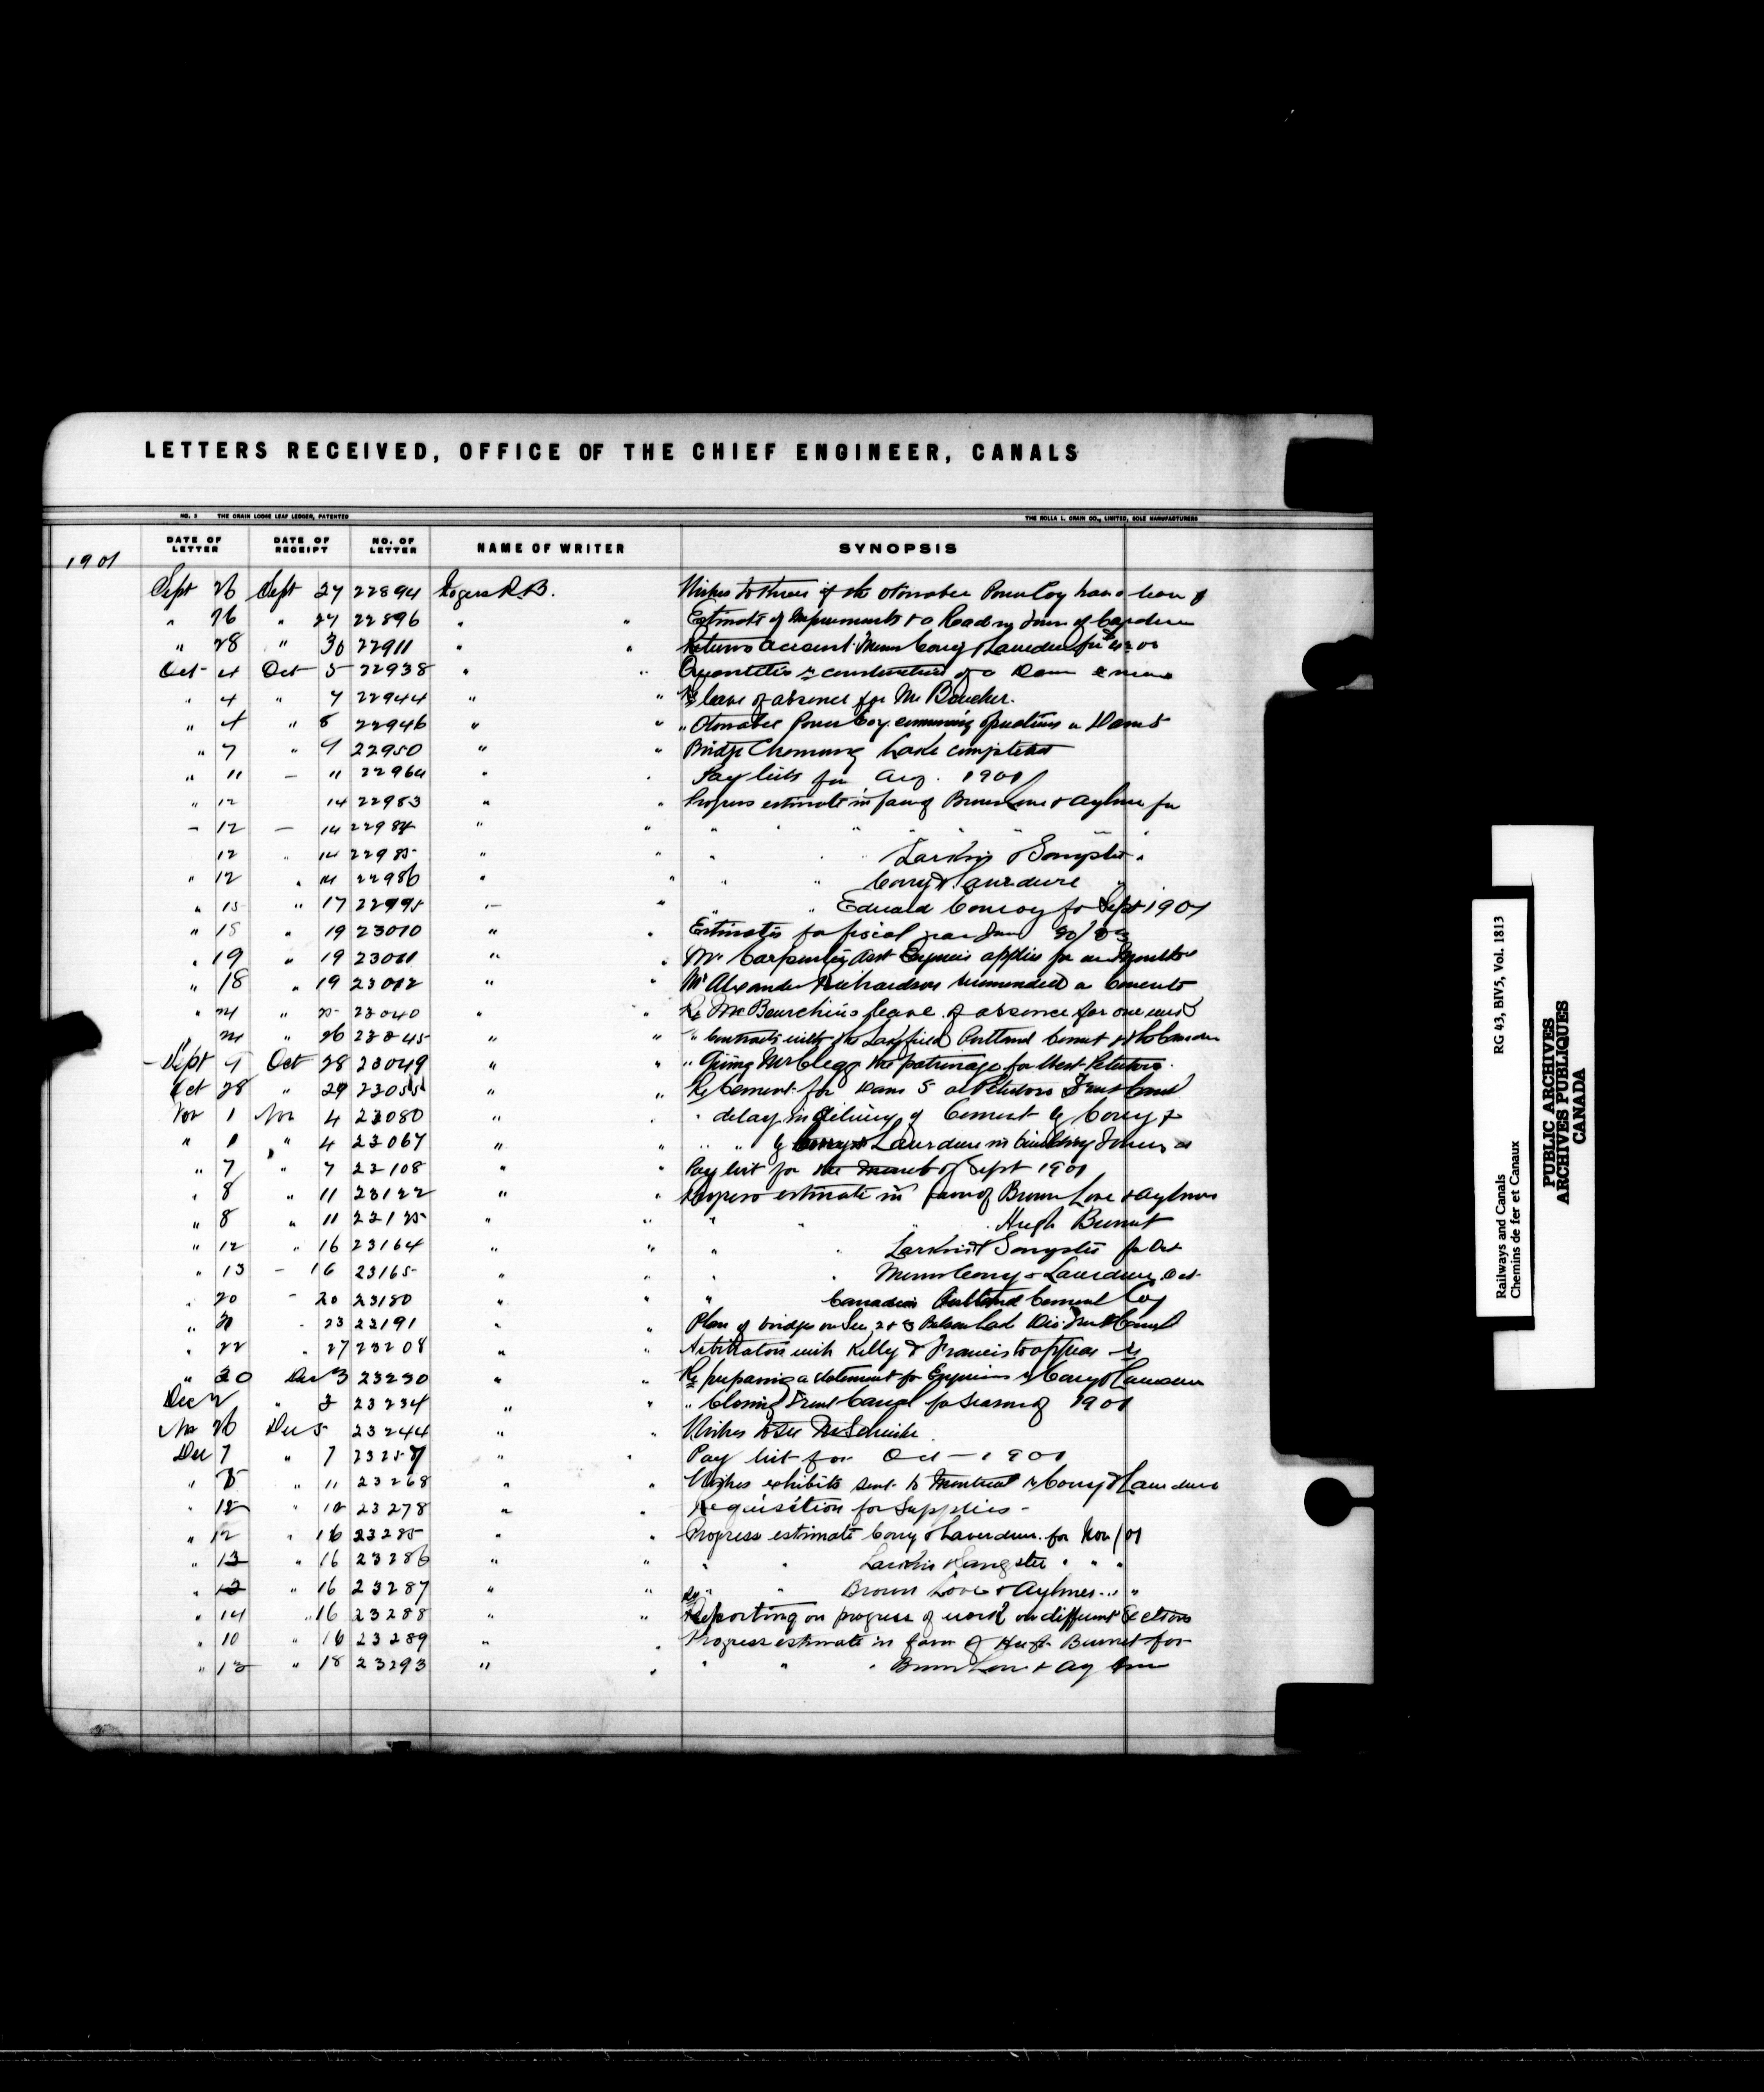 LETTERS RECEIVED, OFFICE OF THE CHIEF ENGINEER, CANALS
NO. 3 THE CRAIN LOOSE LEAF LEDGER, PATENTED THE ROLLA L. CRAIN CO., LIMITED, SOLE MANUFACTURERS
1901 DATE OF LETTER DATE OF RECEIPT NO. OF LETTER NAME OF WRITER SYNOPSIS
Sept 26 Sept 27 22894 Rogers R.B. Wishes to know if the Otonabee Power Coy have
" 26 " 27 22896 " " Estimate of
" 28 " 30 22911 " " Returns account Messrs Corry & Laverdure for
Oct 4 Oct 5 22938 " " Quantities re construction of a Dam
" 4 " 7 22944 " " Re leave of absence for Mr Boucher.
" 4 " 8 22946 " " " Otonabee Power Coy. commencing operations Dam 5
" 7 " 9 22950 " " Bridge Chemung Lake completed
" 11 " 11 22964 " " Pay lists for Aug. 1901
" 12 14 22983 " " Progress estimate in favor of Brown Love & Aylmer for
" 12 " 14 22984 " " " " " " " "
12 " 14 22985 " " " " Larkin & Sangster "
" 12 " 14 22986 " " " " Corry & Laverdure "
" 15 " 17 22995 " " " " Edward Conroy for Sept 1901
" 15 " 19 23010 " " Estimates for fiscal year June 30/03
" 19 " 19 23011 " " Mr Carpenter Asst Engineer applies for an
" 18 " 19 23012 " " Mr Alexander Richardson recommended a Cement
" 24 " 25 23040 " " Re Mr Bourchier's leave of absence for one
" 24 " 26 23045 " " " Contracts with the Lakefield Portland Cement & the Canadian
Sept 9 Oct 28 23049 " " " Giving Mr Clegg the patronage for West Peterboro.
Oct 28 " 29 23055 " " Re Cement for Dam 5 at Peterboro Trent Canal
Nov 1 Nov 4 23080 " " " delay in delivery of Cement by Corry &
" 1 " 4 23067 " " " " by Corry & Laverdure in building
" 7 " 7 23108 " " Pay list for the Month of Sept 1901
" 8 " 11 23122 " " Progress estimate in favor of Brown Love & Aylmer
" 8 " 11 23125 " " " " " Hugh Burnet
" 12 " 16 23164 " " " " Larkin & Sangster for Oct
" 13 " 16 23165 " " " " Messrs Corry & Laverdure Oct.
" 20 " 20 23180 " " " Canadian Portland Cement Coy
" 20 " 23 23191 " " Plan of bridge on Sec 2 & 3 Balsam Lake Div. Trent Canal
" 22 " 27 23208 " " Arbitration with Kelly & Francis to appear
" 30 Dec 3 23230 " " Re preparing a statement for Engineers re Corry & Laverdure
Dec 2 " 3 23234 " " " Closing Trent Canal for season of 1901
Nov 26 Dec 5 23244 " " Wishes to see Mr Schenk
Dec 7 " 7 23257 " " Pay list for Oct 1901
" 8 " 11 23268 " " Wishes exhibits sent to Montreal re Corry & Laverdure
" 12 " 12 23278 " " Requisition for Supplies
" 12 " 16 23285 " " Progress estimate Corry & Laverdure for Nov/01
" 13 " 16 23286 " " " " Larkin & Sangster " " "
" 13 " 16 23287 " " " " Brown Love & Aylmer " "
" 14 " 16 23288 " " Reporting on progress of work on different Sections
" 10 " 16 23289 " " Progress estimate in favor of Hugh Burnet for
" 13 " 18 23293 " " " " " Brown Love & Aylmer
Railways and Canals RG 43, BIV5, Vol. 1813
Chemins de fer et Canaux
PUBLIC ARCHIVES
ARCHIVES PUBLIQUES
CANADA